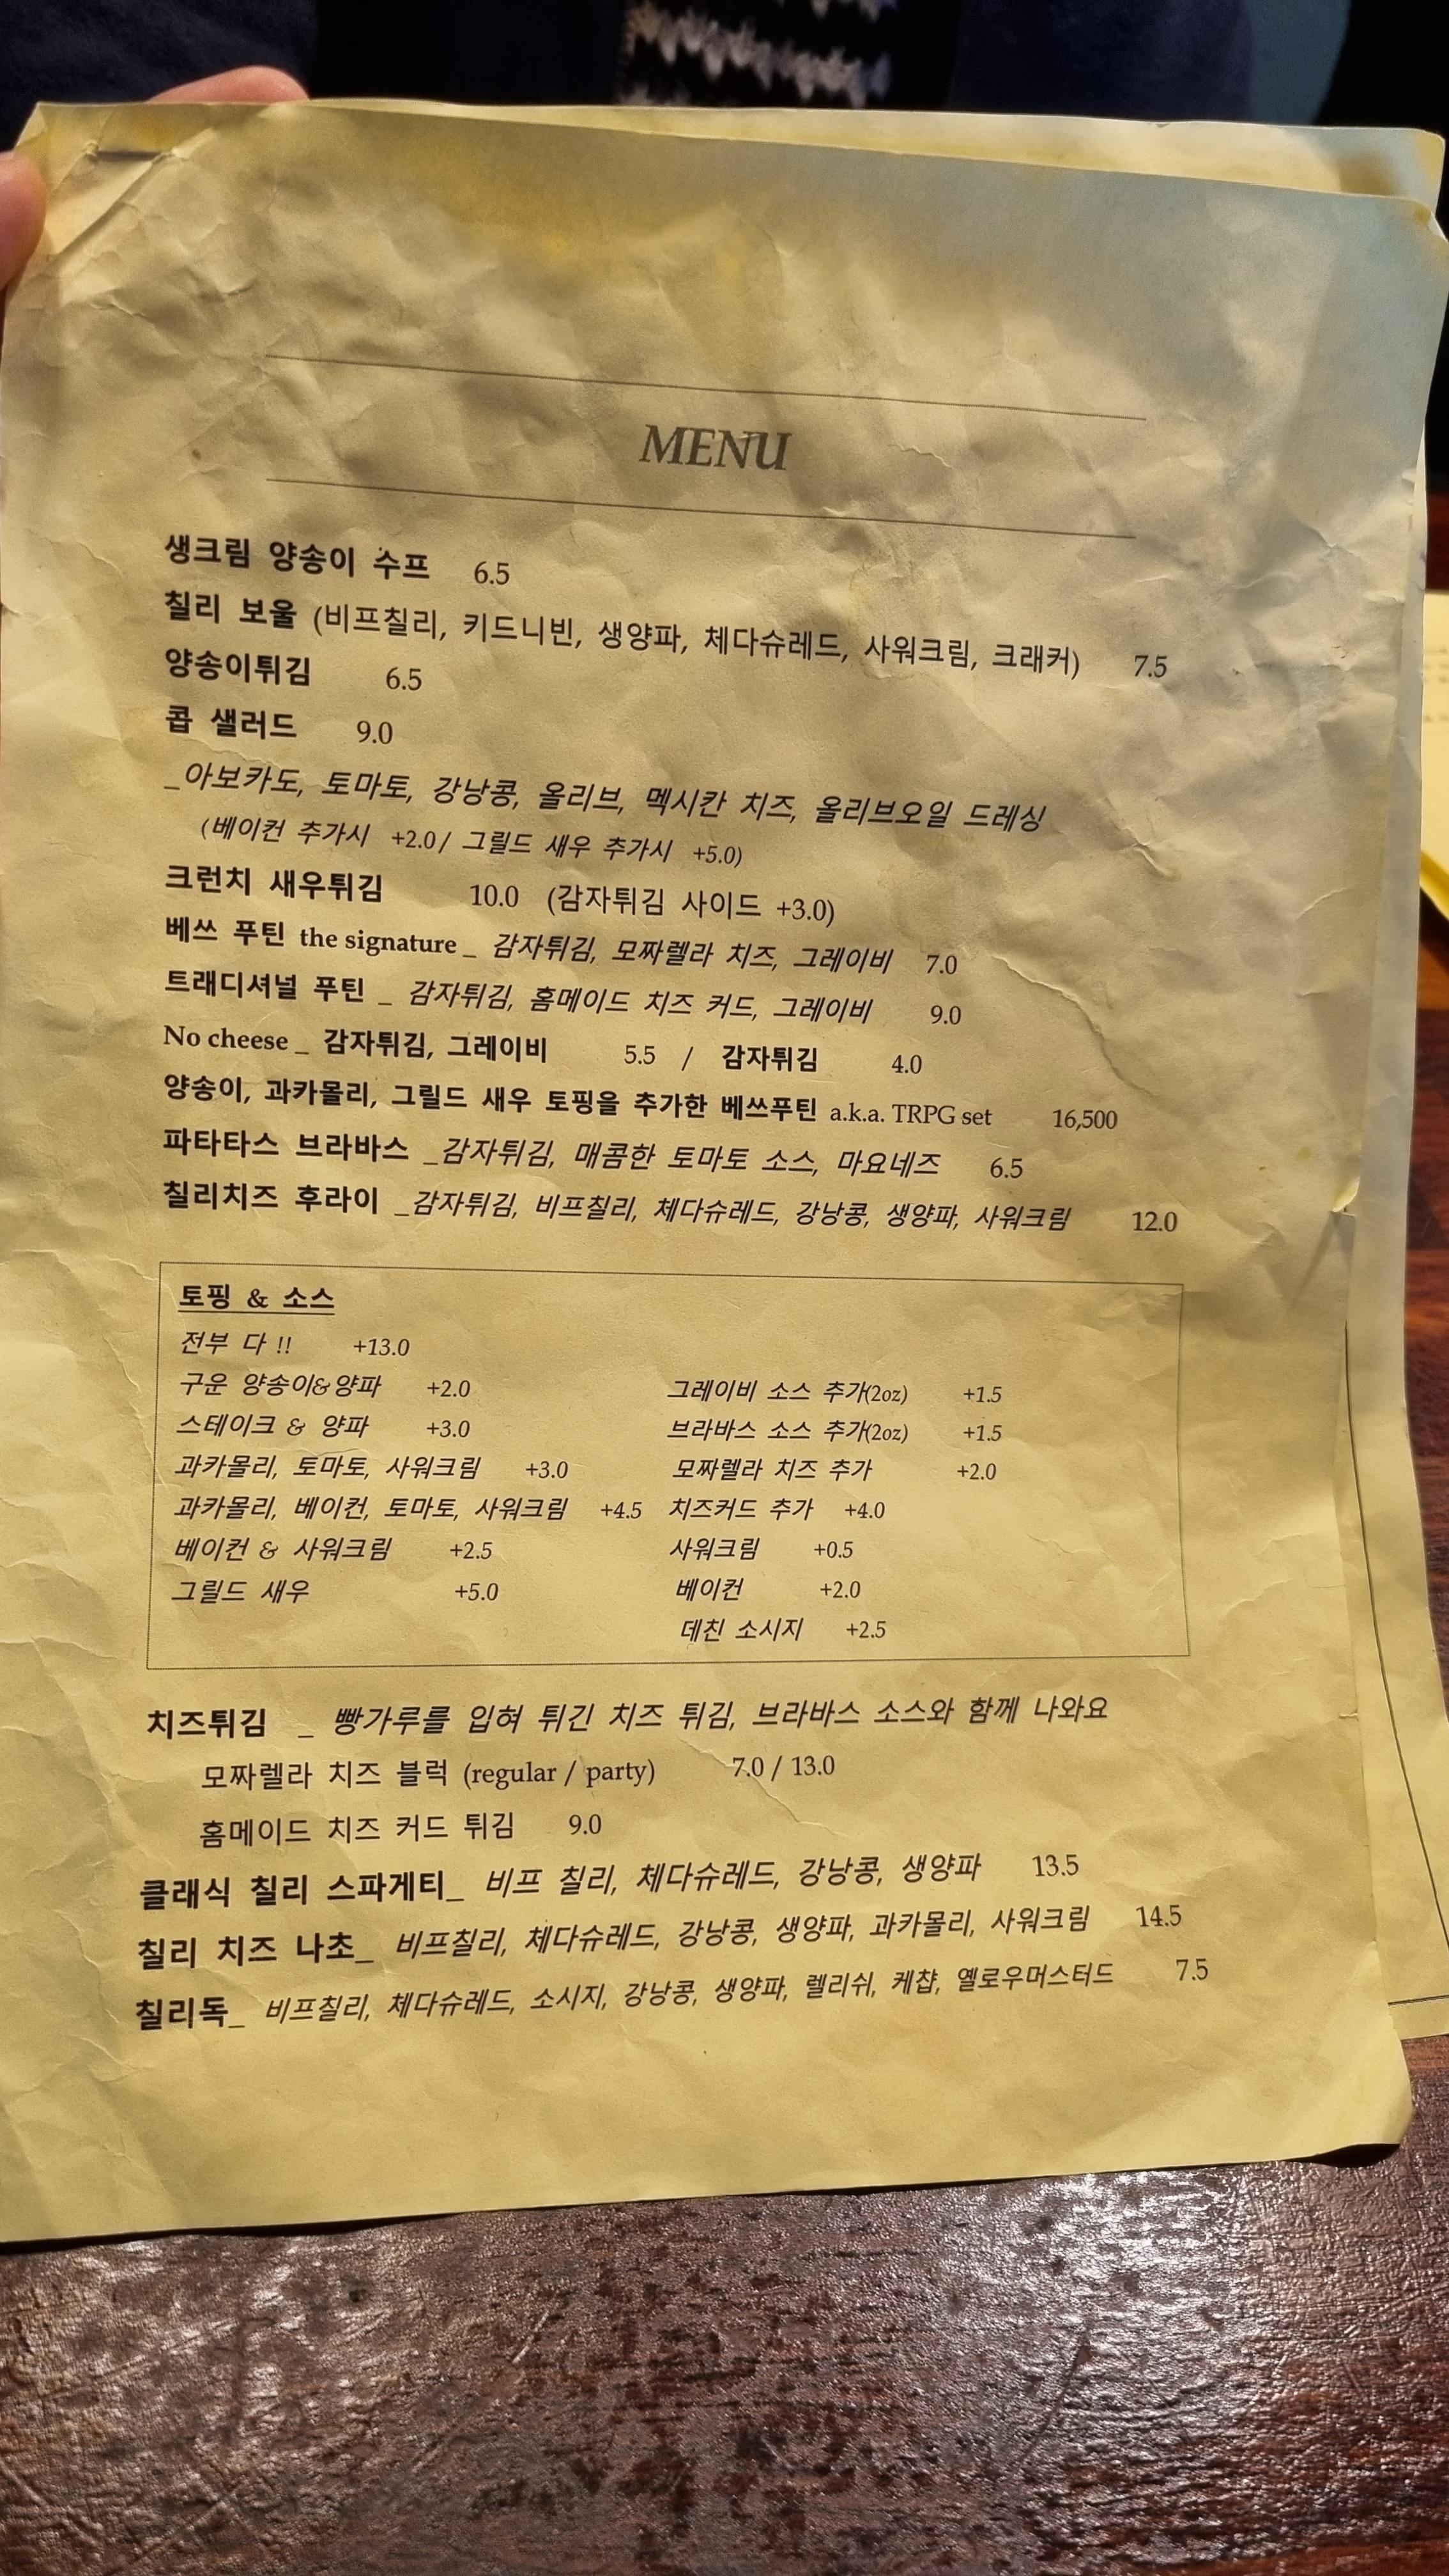 MENU
생크림 양송이 수프 6.5
칠리 보울 (비프칠리, 키드니빈, 생양파, 체다슈레드, 사워크림, 크래커) 7.5
양송이튀김 6.5
콥 샐러드 9.0
_아보카도, 토마토, 강낭콩, 올리브, 멕시칸 치즈, 올리브오일 드레싱
(베이컨 추가시 +2.0/ 그릴드 새우 추가시 +5.0)
크런치 새우튀김 10.0 (감자튀김 사이드 +3.0)
베쓰 푸틴 the signature _ 감자튀김, 모짜렐라 치즈, 그레이비 7.0
트래디셔널 푸틴 _ 감자튀김, 홈메이드 치즈 커드, 그레이비 9.0
No cheese _ 감자튀김, 그레이비 5.5 / 감자튀김 4.0
양송이, 과카몰리, 그릴드 새우 토핑을 추가한 베쓰푸틴 a.k.a. TRPG set 16,500
파타타스 브라바스 _감자튀김, 매콤한 토마토 소스, 마요네즈 6.5
칠리치즈 후라이 _감자튀김, 비프칠리, 체다슈레드, 강낭콩, 생양파, 사워크림 12.0
토핑 & 소스
전부 다 !! +13.0
구운 양송이&양파 +2.0 그레이비 소스 추가(2oz) +1.5
스테이크 & 양파 +3.0 브라바스 소스 추가(2oz) +1.5
과카몰리, 토마토, 사워크림 +3.0 모짜렐라 치즈 추가 +2.0
과카몰리, 베이컨, 토마토, 사워크림 +4.5 치즈커드 추가 +4.0
베이컨 & 사워크림 +2.5 사워크림 +0.5
그릴드 새우 +5.0 베이컨 +2.0
데친 소시지 +2.5
치즈튀김 _ 빵가루를 입혀 튀긴 치즈 튀김, 브라바스 소스와 함께 나와요
모짜렐라 치즈 블럭 (regular / party) 7.0 / 13.0
홈메이드 치즈 커드 튀김 9.0
클래식 칠리 스파게티_ 비프 칠리, 체다슈레드, 강낭콩, 생양파 13.5
칠리 치즈 나초_ 비프칠리, 체다슈레드, 강낭콩, 생양파, 과카몰리, 사워크림 14.5
칠리독_ 비프칠리, 체다슈레드, 소시지, 강낭콩, 생양파, 렐리쉬, 케챱, 옐로우머스터드 7.5